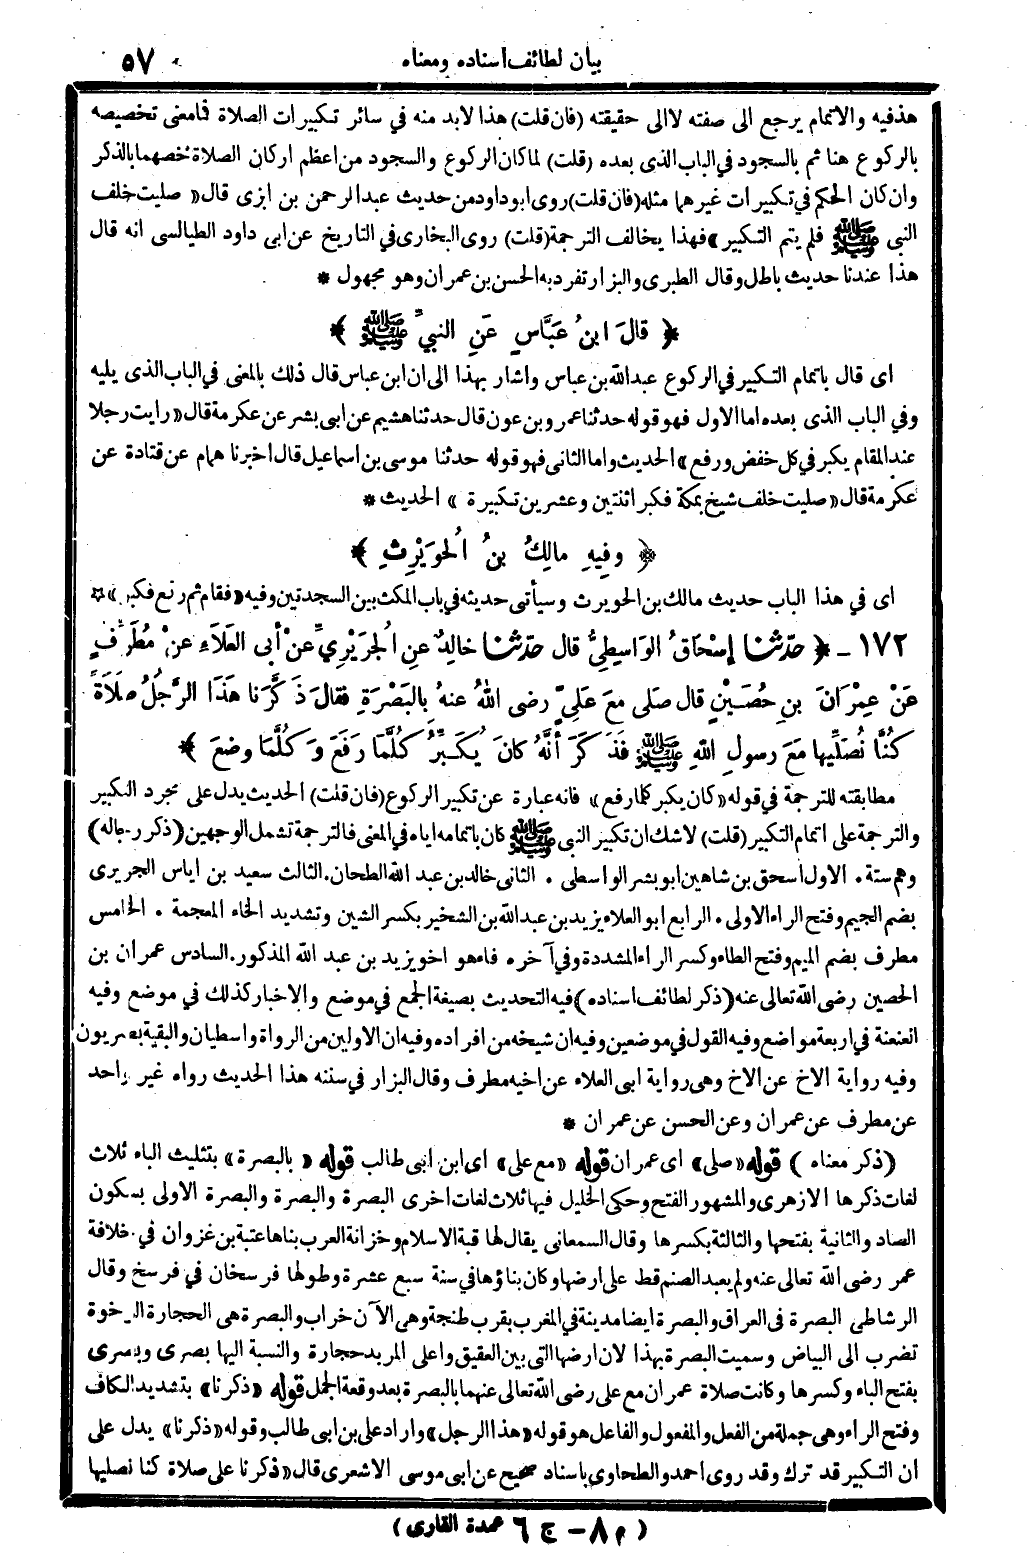 بيان لطائف اسناده ومعناه ٥٧
هذفيه والاتمام يرجع الى صفته لا الى حقيقته (فان قلت) هذا لابد منه في سائر تكبيرات الصلاة فما معنى تخصيصه
بالركوع هنا ثم بالسجود في الباب الذى بعده (قلت) لما كان الركوع والسجود من اعظم اركان الصلاة خصهما بالذكر
وان كان الحكم في تكبيرات غيرهما مثله (فان قلت) روى ابو داود من حديث عبد الرحمن بن ابزى قال «صليت خلف
النبى ﷺ فلم يتم التكبير» فهذا يخالف الترجمة (قلت) روى البخارى في التاريخ عن ابى داود الطيالسى انه قال
هذا عندنا حديث باطل وقال الطبرى والبزار تفرد به الحسن بن عمران وهو مجهول *
﴿ قالَ ابنُ عَبَّاسٍ عَنِ النبيِّ ﷺ ﴾
اى قال باتمام التكبير في الركوع عبد الله بن عباس واشار بهذا الى ان ابن عباس قال ذلك بالمعنى في الباب الذى يليه
وفي الباب الذى بعده اما الاول فهو قوله حدثنا عمرو بن عون قال حدثنا هشيم عن ابى بشر عن عكرمة قال «رايت رجلا
عند المقام يكبر في كل خفض ورفع» الحديث واما الثانى فهو قوله حدثنا موسى بن اسماعيل قال اخبرنا همام عن قتادة عن
عكرمة قال «صليت خلف شيخ بمكة فكبر اثنتين وعشرين تكبيرة» الحديث *
﴿ وفِيهِ مالِكُ بنُ الحُوَيْرِثِ ﴾
اى في هذا الباب حديث مالك بن الحويرث وسيأتى حديثه في باب المكث بين السجدتين وفيه «فقام ثم ركع فكبر» *
١٧٢ - ﴿ حدّثنا إسْحَاقُ الوَاسِطِيُّ قال حدّثنا خالِدٌ عنِ الجُرَيْرِيِّ عنْ أبى العَلَاءِ عنْ مُطَرِّفٍ
عَنْ عِمْرَانَ بنِ حُصَيْنٍ قال صلى مَعَ عَلِيٍّ رضى اللهُ عنهُ بِالبَصْرَةِ فقالَ ذَكَّرَنَا هَذَا الرَّجُلُ صَلَاةً
كُنَّا نُصَلِّيها مَعَ رسولِ اللهِ ﷺ فَذَكَرَ أنَّهُ كانَ يُكَبِّرُ كُلَّمَا رَفَعَ وَكُلَّمَا وضعَ ﴾
مطابقته للترجمة في قوله «كان يكبر كلما رفع» فانه عبارة عن تكبير الركوع (فان قلت) الحديث يدل على مجرد التكبير
والترجمة على اتمام التكبير (قلت) لاشك ان تكبير النبى ﷺ كان باتمامه اياه في المعنى فالترجمة تشمل الوجهين (ذكر رجاله)
وهم ستة. الاول اسحق بن شاهين ابو بشر الواسطى. الثانى خالد بن عبد الله الطحان. الثالث سعيد بن اياس الجريرى
بضم الجيم وفتح الراء الاولى. الرابع ابو العلاء يزيد بن عبد الله بن الشخير بكسر الشين وتشديد الخاء المعجمة. الخامس
مطرف بضم الميم وفتح الطاء وكسر الراء المشددة وفي آخره فاء هو اخو يزيد بن عبد الله المذكور. السادس عمران بن
الحصين رضى الله تعالى عنه (ذكر لطائف اسناده) فيه التحديث بصيغة الجمع في موضع والاخبار كذلك في موضع وفيه
العنعنة في اربعة مواضع وفيه القول في موضعين وفيه ان شيخه من افراده وفيه ان الاولين من الرواة واسطيان والبقية بصريون
وفيه رواية الاخ عن الاخ وهى رواية ابى العلاء عن اخيه مطرف وقال البزار في سننه هذا الحديث رواه غير واحد
عن مطرف عن عمران وعن الحسن عن عمران *
(ذكر معناه) قوله «صلى» اى عمران قوله «مع على» اى ابن ابى طالب قوله «بالبصرة» بتثليث الباء ثلاث
لغات ذكرها الازهرى والمشهور الفتح وحكى الخليل فيها ثلاث لغات اخرى البصرة والبصرة والبصرة الاولى بسكون
الصاد والثانية بفتحها والثالثة بكسرها وقال السمعانى يقال لها قبة الاسلام وخزانة العرب بناها عتبة بن غزوان في خلافة
عمر رضى الله تعالى عنه ولم يعبد الصنم قط على ارضها وكان بناؤها في سنة سبع عشرة وطولها فرسخان في فرسخ وقال
الرشاطى البصرة في العراق والبصرة ايضا مدينة في المغرب بقرب طنجة وهى الآن خراب والبصرة هى الحجارة الرخوة
تضرب الى البياض وسميت البصرة بهذا لان ارضها التى بين العقيق واعلى المربد حجارة والنسبة اليها بصرى وبصرى
بفتح الباء وكسرها وكانت صلاة عمران مع على رضى الله تعالى عنهما بالبصرة بعد وقعة الجمل قوله «ذكرنا» بتشديد الكاف
وفتح الراء وهى جملة من الفعل والمفعول والفاعل هو قوله «هذا الرجل» واراد على بن ابى طالب وقوله «ذكرنا» يدل على
ان التكبير قد ترك وقد روى احمد والطحاوى باسناد صحيح عن ابى موسى الاشعرى قال «ذكرنا على صلاة كنا نصليها
(م ٨ - ج ٦ عمدة القارى)